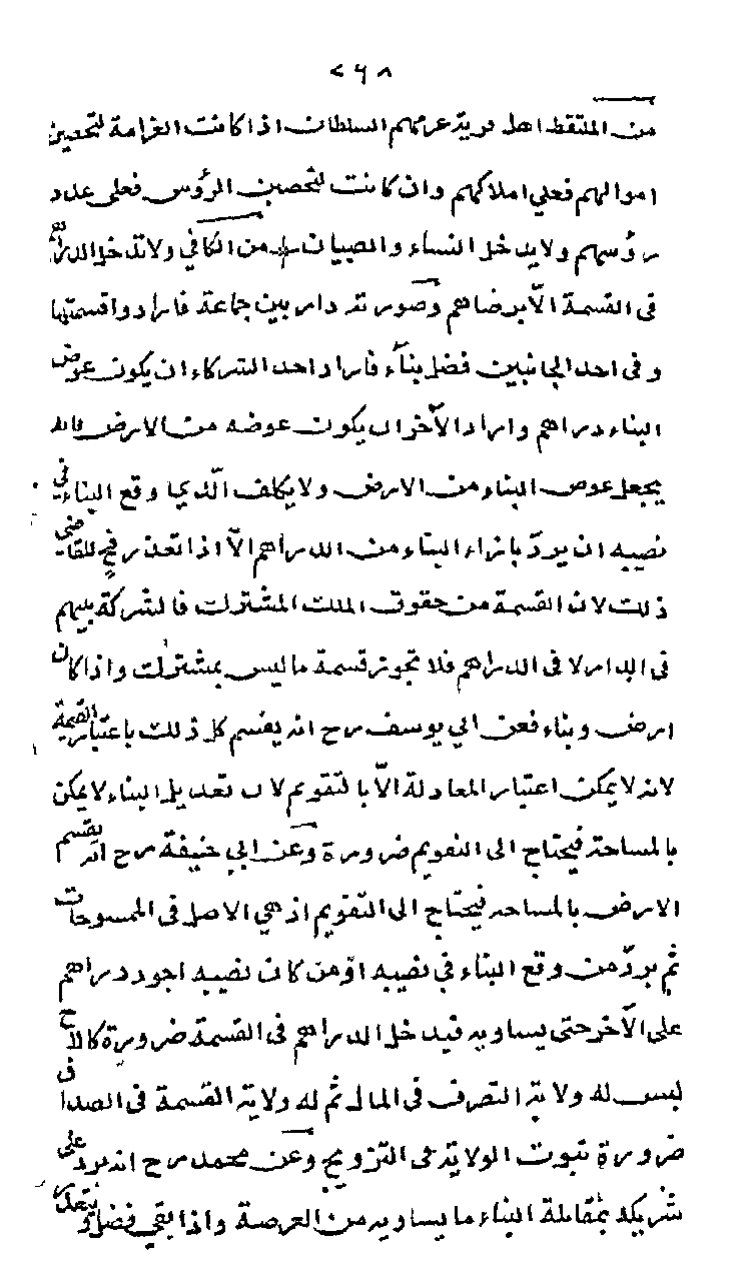 <٩٨
من الملتقط اهل قرية غرمهم السلطان اذا كانت الغرامة لتحصين
اموالهم فعلى املاكهم وان كانت لتحصين الرؤس فعلى عدد
رؤسهم ولا يدخل النساء والصبيان من الكافي ولا تدخل الدراهم
فى القسمة الّا برضاهم وصورته دار بين جماعة فارادوا قسمتها
وفى احد الجانبين فضل بنآء فاراد احد الشركاء ان يكون عوض
البناء دراهم واراد الآخر ان يكون عوضه من الارض فانه
يجعل عوض البناء من الارض ولا يكلف الّذي وقع البناء فى
نصيبه ان يردّ بازاء البناء من الدراهم الّا اذا تعذر فح للقاضى
ذلك لان القسمة من حقوق الملك المشترك فالشركة بينهم
فى الدار لا فى الدراهم فلا تجوز قسمة ما ليس بمشترك واذا كان
ارض وبناء فعن ابي يوسف رح انه يقسم كل ذلك باعتبار القيمة
لانه لا يمكن اعتبار المعادلة الّا بالتقويم لان تعديل البناء لا يمكن
بالمساحة فيحتاج الى التقويم ضرورة وعن ابي حنيفة رح انه يقسم
الارض بالمساحة فيحتاج الى التقويم اذ هي الاصل فى الممسوحات
ثم يردّ من وقع البناء في نصيبه او من كان نصيبه اجود دراهم
على الآخر حتى يساويه فيدخل الدراهم فى القسمة ضرورة كالاخ
ليس له ولاية التصرف فى المال ثم له ولاية القسمة فى الصداق
ضرورة ثبوت الولاية فى التزويج وعن محمد رح انه يردّ على
شريكه بمقابلة البناء ما يساويه من العرصة واذا بقي فضل و